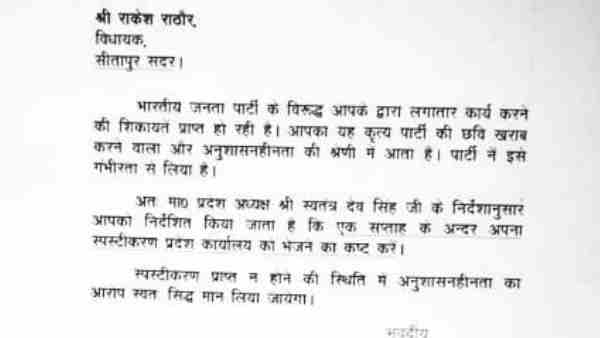 श्री राकेश राठौर,
विधायक,
सीतापुर सदर।
भारतीय जनता पार्टी के विरूद्ध आपके द्वारा लगातार कार्य करने
की शिकायतें प्राप्त हो रही है। आपका यह कृत्य पार्टी की छवि खराब
करने वाला और अनुशासनहीनता की श्रेणी में आता है। पार्टी नें इसे
गंभीरता से लिया है।
अतः मा0 प्रदेश अध्यक्ष श्री स्वतंत्र देव सिंह जी के निर्देशानुसार
आपको निर्देशित किया जाता है कि एक सप्ताह के अन्दर अपना
स्पस्टीकरण प्रदेश कार्यालय को भेजने का कष्ट करें।
स्पस्टीकरण प्राप्त न होने की स्थिति में अनुशासनहीनता का
आरोप स्वतः सिद्ध मान लिया जायेगा।
भवदीय